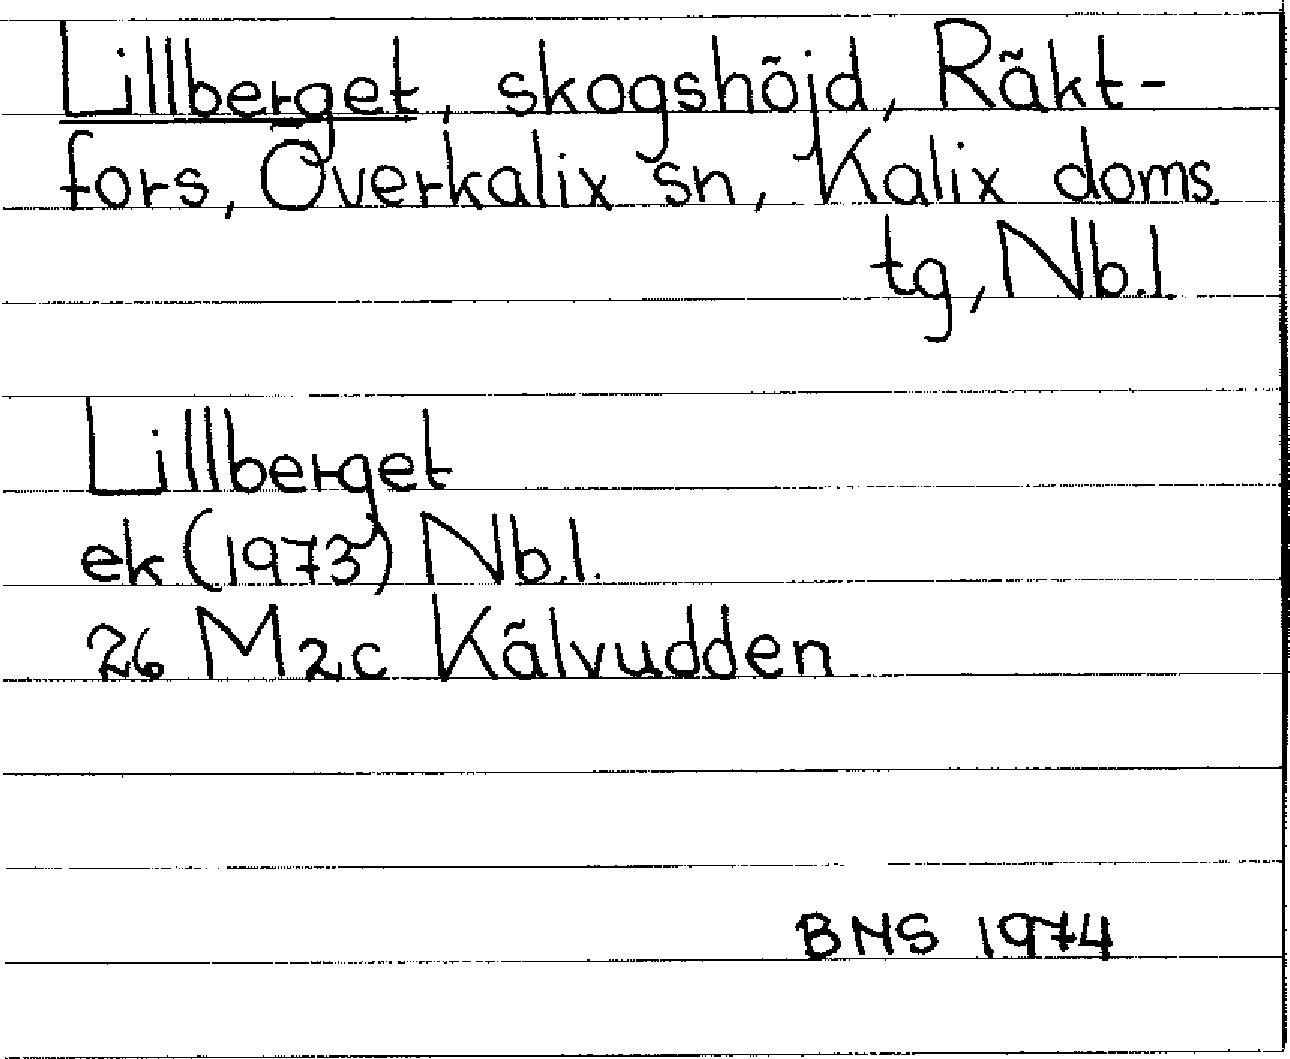 Lillberget, skogshöjd, Räkt-
fors, Överkalix sn, Kalix doms.
tg, Nb.l.
Lillberget
ek (1973) Nb.l.
26 M2c Kälvudden
BNS 1974